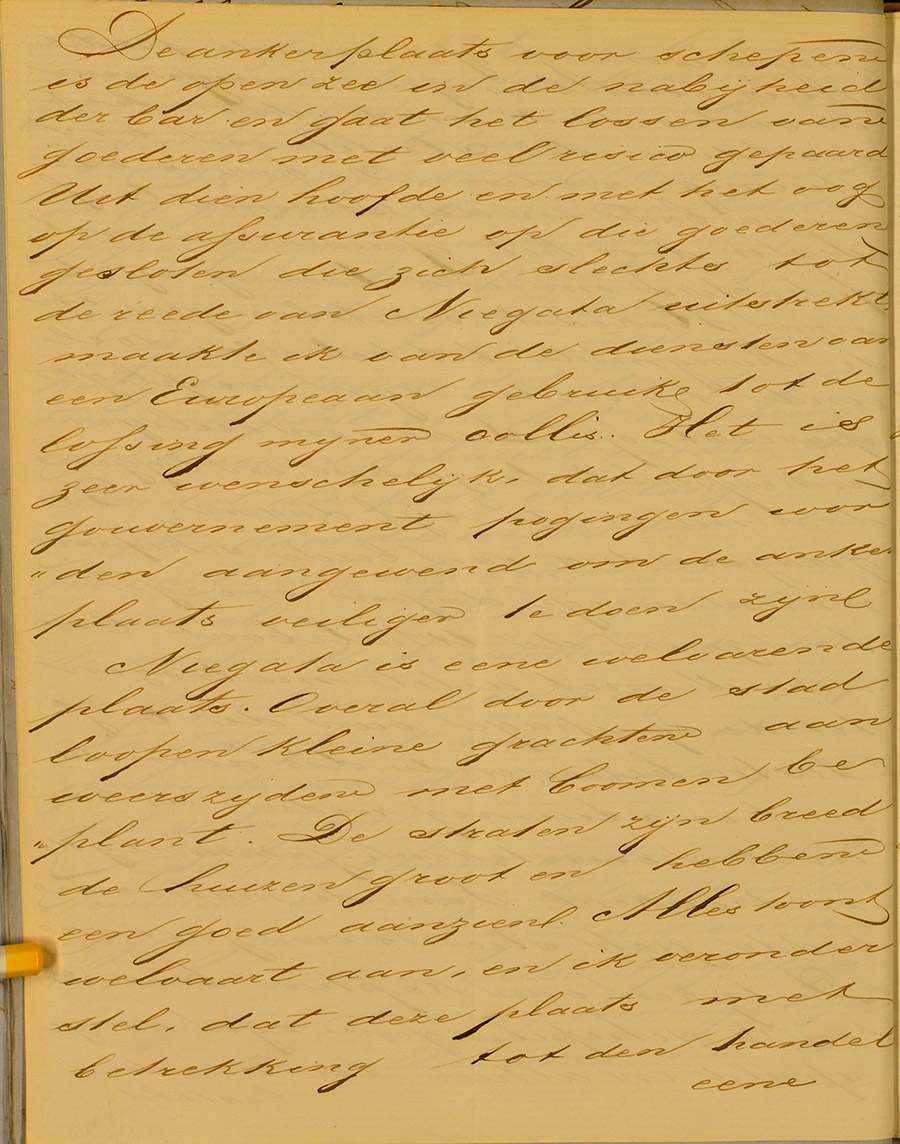 De ankerplaats voor schepen
is de open zee in de nabijheid
der bar en gaat het lossen van
goederen met veel risico gepaard
Uit dien hoofde en met het oog
op de assurantie op die goederen
gesloten die zich slechts tot
de reede van Niegata uitstrekt,
maakte ik van de diensten van
een Europeaan gebruik tot de
lossing mijner collis. Het is
zeer wenschelijk, dat door het
gouvernement pogingen wor
"den aangewend om de anker
plaats veiliger te doen zijn.
Niegata is eene welvarende
plaats. Overal door de stad
loopen kleine grachten aan
weerszijden met boomen be
"plant. De straten zijn breed
de huizen groot en hebben
een goed aanzien. Alles toont
welvaart aan, en ik veronder
stel, dat deze plaats met
betrekking tot den handel
eene